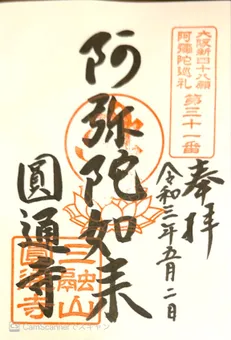 大阪新四十八願
阿彌陀巡礼
第三十一番
奉拝
令和三年五月二日
阿弥陀如来
圓通寺
三融山
圓通寺
CamScannerでスキャン